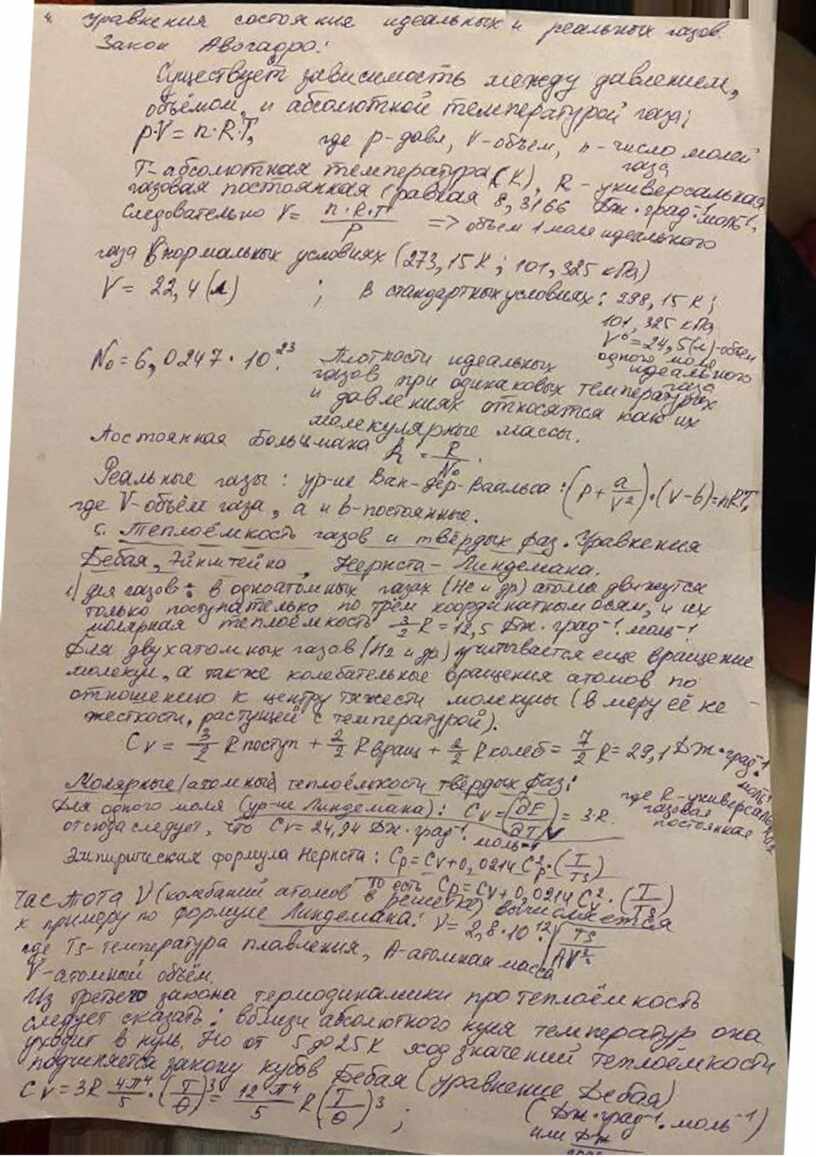 4. Уравнения состояние идеальных и реальных газов.
Закон Авогадро:
Существует зависимость между давлением,
объёмом и абсолютной температурой газа;
p·V = n·R·T, где p-давл, V-объем, n-число молей
газа
T-абсолютная температура (K), R-универсальная
газовая постоянная (равная 8,3166 Дж·град⁻¹моль⁻¹,
Следовательно V = n·R·T/P => объем 1 моле идеального
газа в нормальных условиях (273,15K; 101,325 кPa)
V = 22,4 (л) ; в стандартных условиях: 298,15 K;
101,325 кPa
V⁰=24,5(л)-объем
одного моле
идеального
газа
N₀ = 6,0247·10²³. Плотности идеальных
газов при одинаковых температурах
и давлениях относятся как их
молекулярные массы.
Постоянная Больцмана k = R/N₀.
Реальные газы: ур-ие Ван-дер-Ваальса: (p + a/V²)·(V-b)=nRT,
где V-объём газа, a и b-постоянные.
5. Теплоёмкость газов и твёрдых фаз. Уравнения
Дебая, Эйнштейна, Нернста-Линдемана.
1) для газов: в одноатомных газах (He и др) атомы движутся
только поступательно по трём координатным осям, и их
молярная теплоёмкость 3/2 R = 12,5 Дж·град⁻¹·моль⁻¹
Для двухатомных газов (H₂ и др) учитывается еще вращение
молекул, а также колебательные вращения атомов по
отношению к центру тяжести молекулы (в меру её не-
жесткости, растущей с температурой).
Cv = 3/2 R поступ + 2/2 R вращ + 2/2 R колеб = 7/2 R = 29,1 Дж·град⁻¹·
моль⁻¹
Молярные/атомный теплоёмкости твёрдых фаз:
где R-универсальная
газовая
постоянная
Для одного моля (ур-ие Линдемана): Cv = (∂E/∂T)v = 3·R.
отсюда следует, что Cv = 24,94 Дж·град⁻¹·моль⁻¹
Эмпирическая формула Нернста: Cp = Cv + 0,0214 C²p·(T/Ts)
то есть Cp = Cv + 0,0214 C²v·(T/Ts)
Частота V (колебаний атомов в решетке) вычисляется
к примеру по формуле Линдемана: V = 2,8·10¹²√(Ts/AV^⅔)
где Ts-температура плавления, A-атомная масса
V-атомный объём.
Из третьего закона термодинамики про теплоёмкость
следует сказать: вблизи абсолютного нуля температур она
уходит в нуль. Но от 5 до 25 K ход значений теплоёмкости
подчиняется закону кубов Дебая (уравнение Дебая)
Cv = 3R 4π⁴/5·(T/θ)³ = 12π⁴/5 R(T/θ)³; (Дж·град⁻¹·моль⁻¹)
или Дж